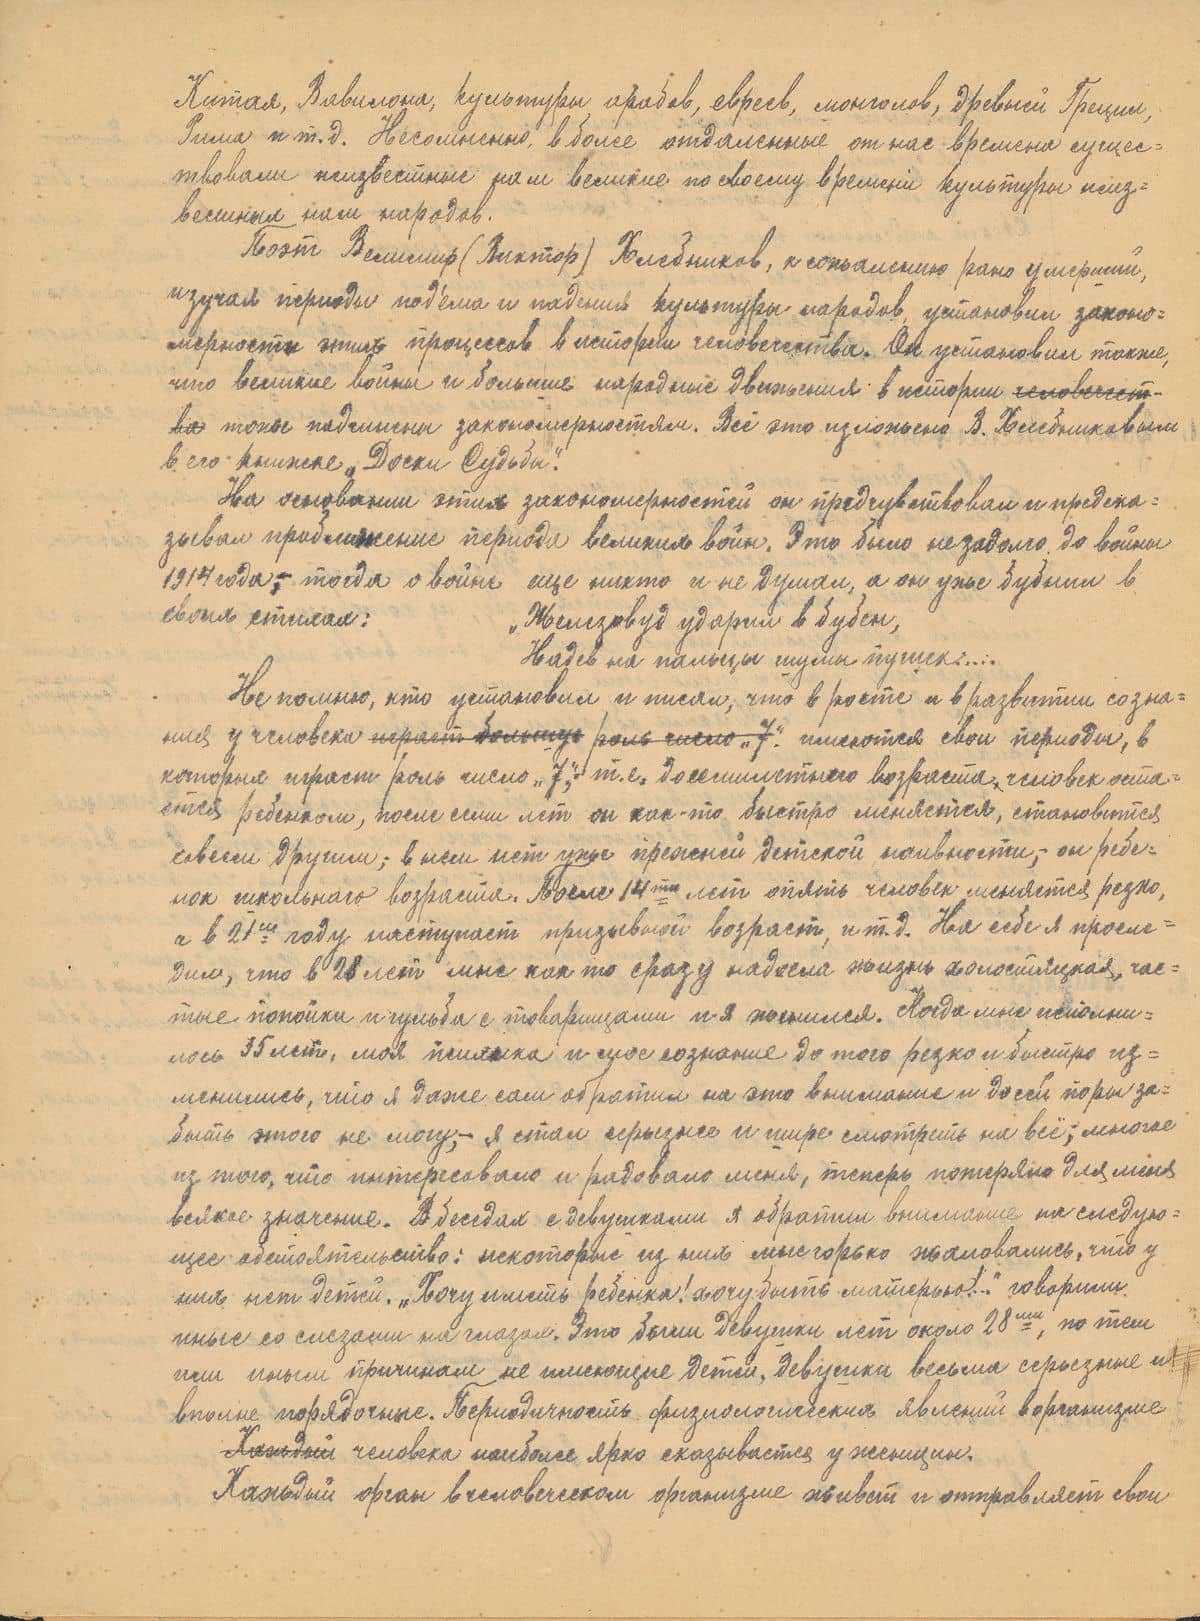 Китая, Вавилона, культуры арабов, евреев, монголов, древней Греции,
Рима и т.д. Несомненно, в более отдаленные от нас времена сущес=
твовали неизвестные нам великие по своему времени культуры неиз=
вестных нам народов.
Поэт Велимир (Виктор) Хлебников, к сожалению рано умерший,
изучая периоды под'ема и падения культуры народов, установил законо=
мерность этих процессов в истории человечества. Он установил также,
что великие войны и большие народные движения в истории человечест-
ва тоже подчинены закономерностям. Всё это изложено В. Хлебниковым
в его книжке „Доски Судьбы".
На основании этих закономерностей он предчувствовал и предска=
зывал приближение периода великих войн. Это было незадолго до войны
1914 года,- тогда о войне еще никто и не думал, а он уже бубнил в
своих стихах:
„Железовуд ударил в бубен,
Надев на пальцы шумы пушек.....
Не помню, кто установил и писал, что в росте и в развитии созна=
ния у человека играет большую роль число „7". имеются свои периоды, в
которых играет роль число „7", т.е. до семилетнего возраста, человек оста=
ется ребенком, после семи лет он как-то быстро меняется, становится
совсем другим,- в нем нет уже прежней детской наивности,- он ребе=
нок школьного возраста. После 14ти лет опять человек меняется резко,
и в 21ом году наступает призывной возраст, и т.д. На себе я просле=
дил, что в 28 лет мне как то сразу надоела жизнь холостяцкая, час=
тые попойки и гульба с товарищами и я женился. Когда мне исполни=
лось 35 лет, моя психика и мое сознание до того резко и быстро из=
менились, что я даже сам обратил на это внимание и до сей поры за=
быть этого не могу,- я стал серьезнее и шире смотреть на всё,- многое
из того, что интересовало и радовало меня, теперь потеряло для меня
всякое значение. В беседах с девушками я обратил внимание на следую=
щее обстоятельство: некоторые из них мне горько жаловались, что у
них нет детей. „Хочу иметь ребенка! хочу быть матерью!.." говорили
иные со слезами на глазах. Это были девушки лет около 28ми, по тем
или иным причинам не имеющие детей, девушки весьма серьезные и
вполне порядочные. Периодичность физиологических явлений в организме
Каждый человека наиболее ярко сказывается у женщин.
Каждый орган в человеческом организме живет и отправляет свои